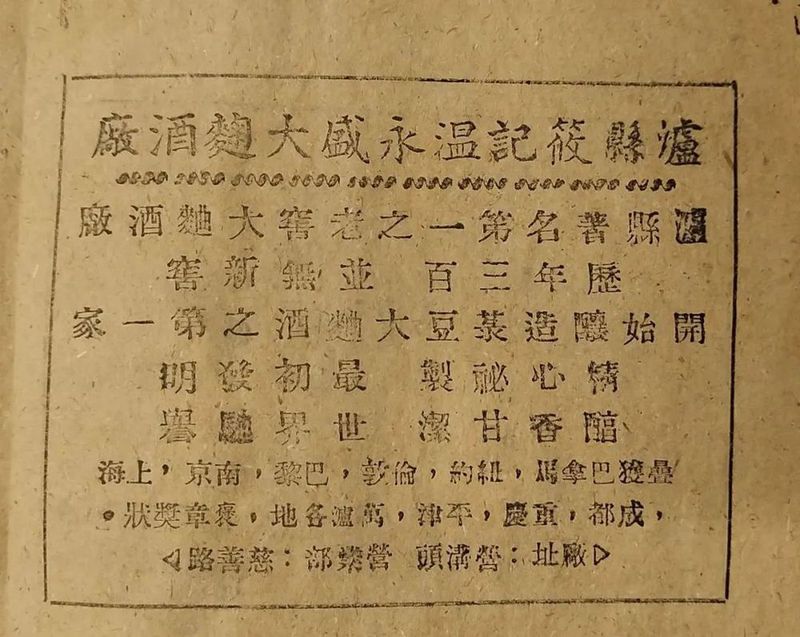 瀘縣筱記温永盛大麴酒廠
瀘縣著名第一之老窖大麯酒廠
歷年三百 並無新窖
開始釀造菉豆大麯酒之第一家
精心祕製 最初發明
醕香甘潔 世界馳譽
疊獲巴拿馬，紐約，倫敦，巴黎，南京，上海
，成都，重慶，平津，萬瀘各地，褒章獎狀。
廠址：營溝頭 營業部：慈善路